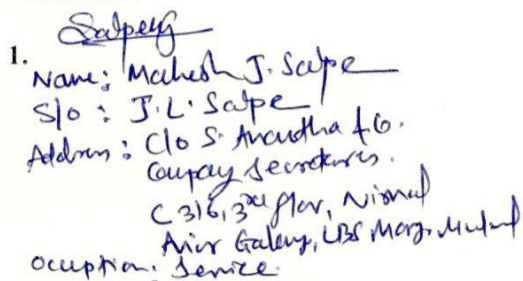 1.
Name: Mahesh J. Salpe
S/o : J. L. Salpe
Address : C/o S. Anantha & Co.
Company Secretaries.
C 316, 3rd Floor, Nirmal
Galaxy, LBS Marg, Mulund
Occuption: Service.